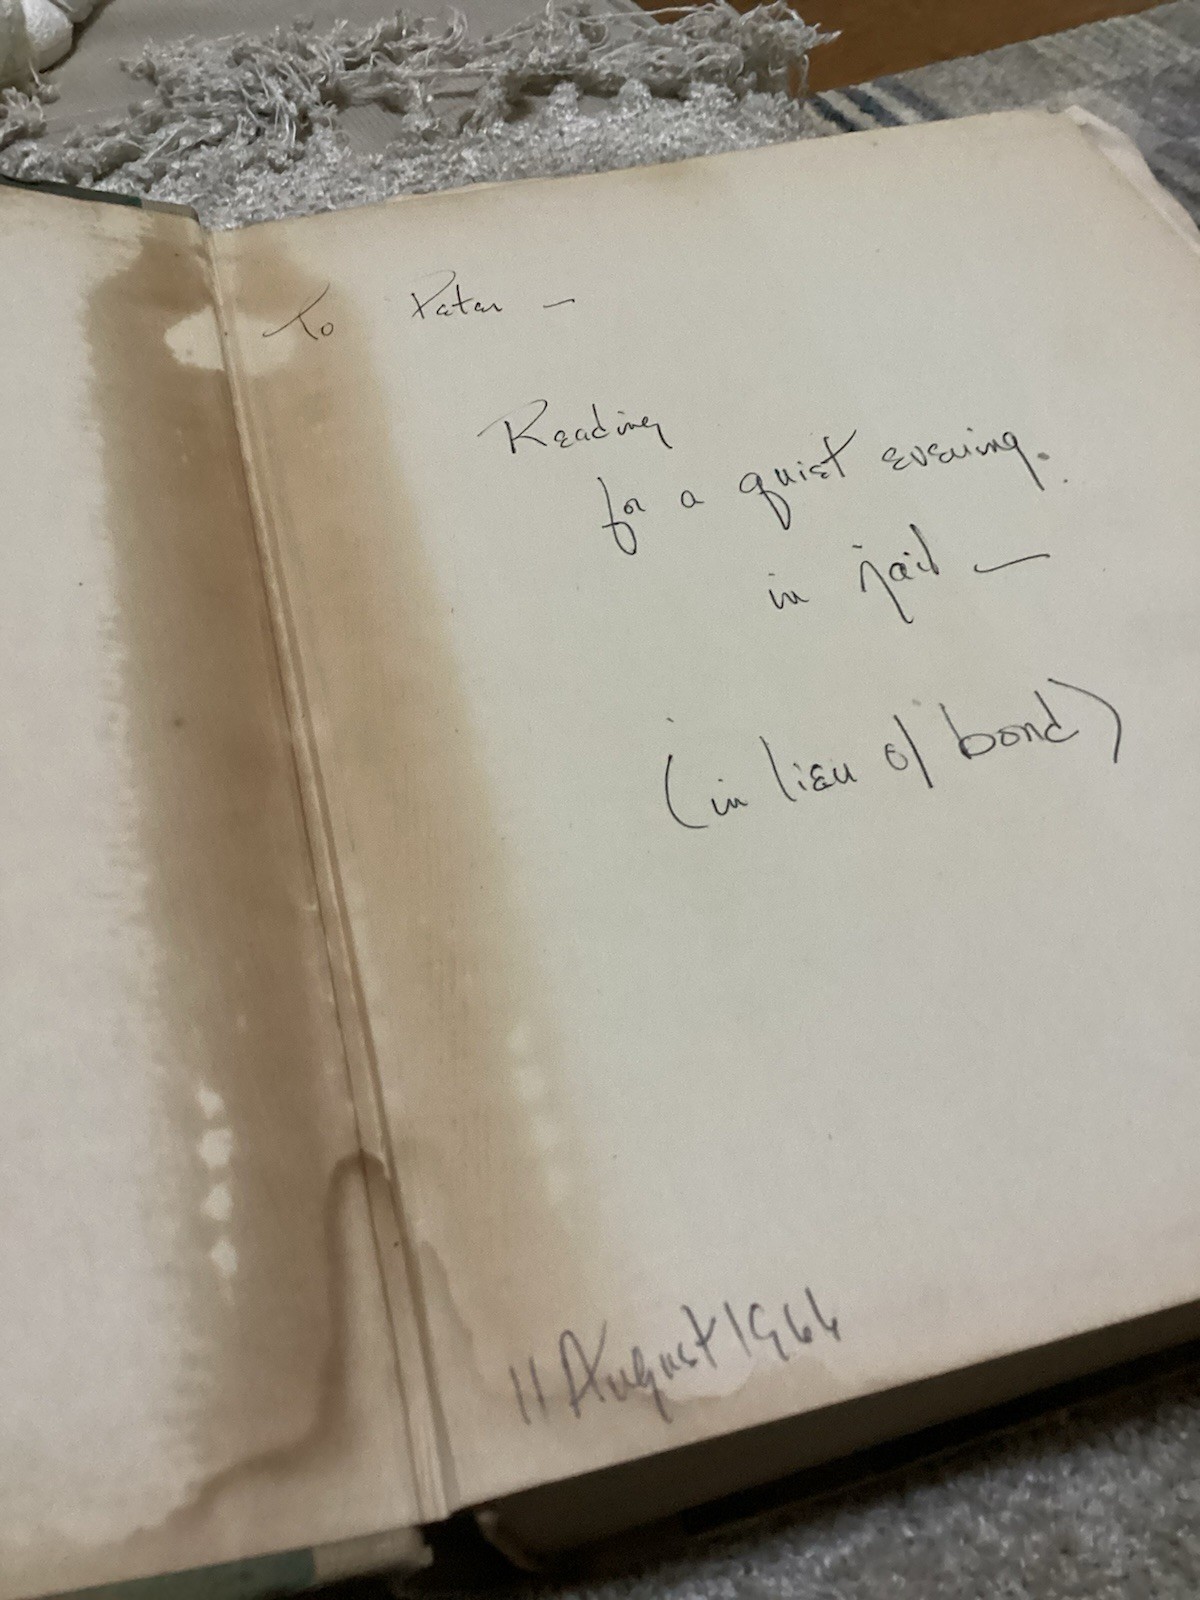 To Peter —
Reading
for a quiet evening.
in jail —
(in lieu of bond)
11 August 1966